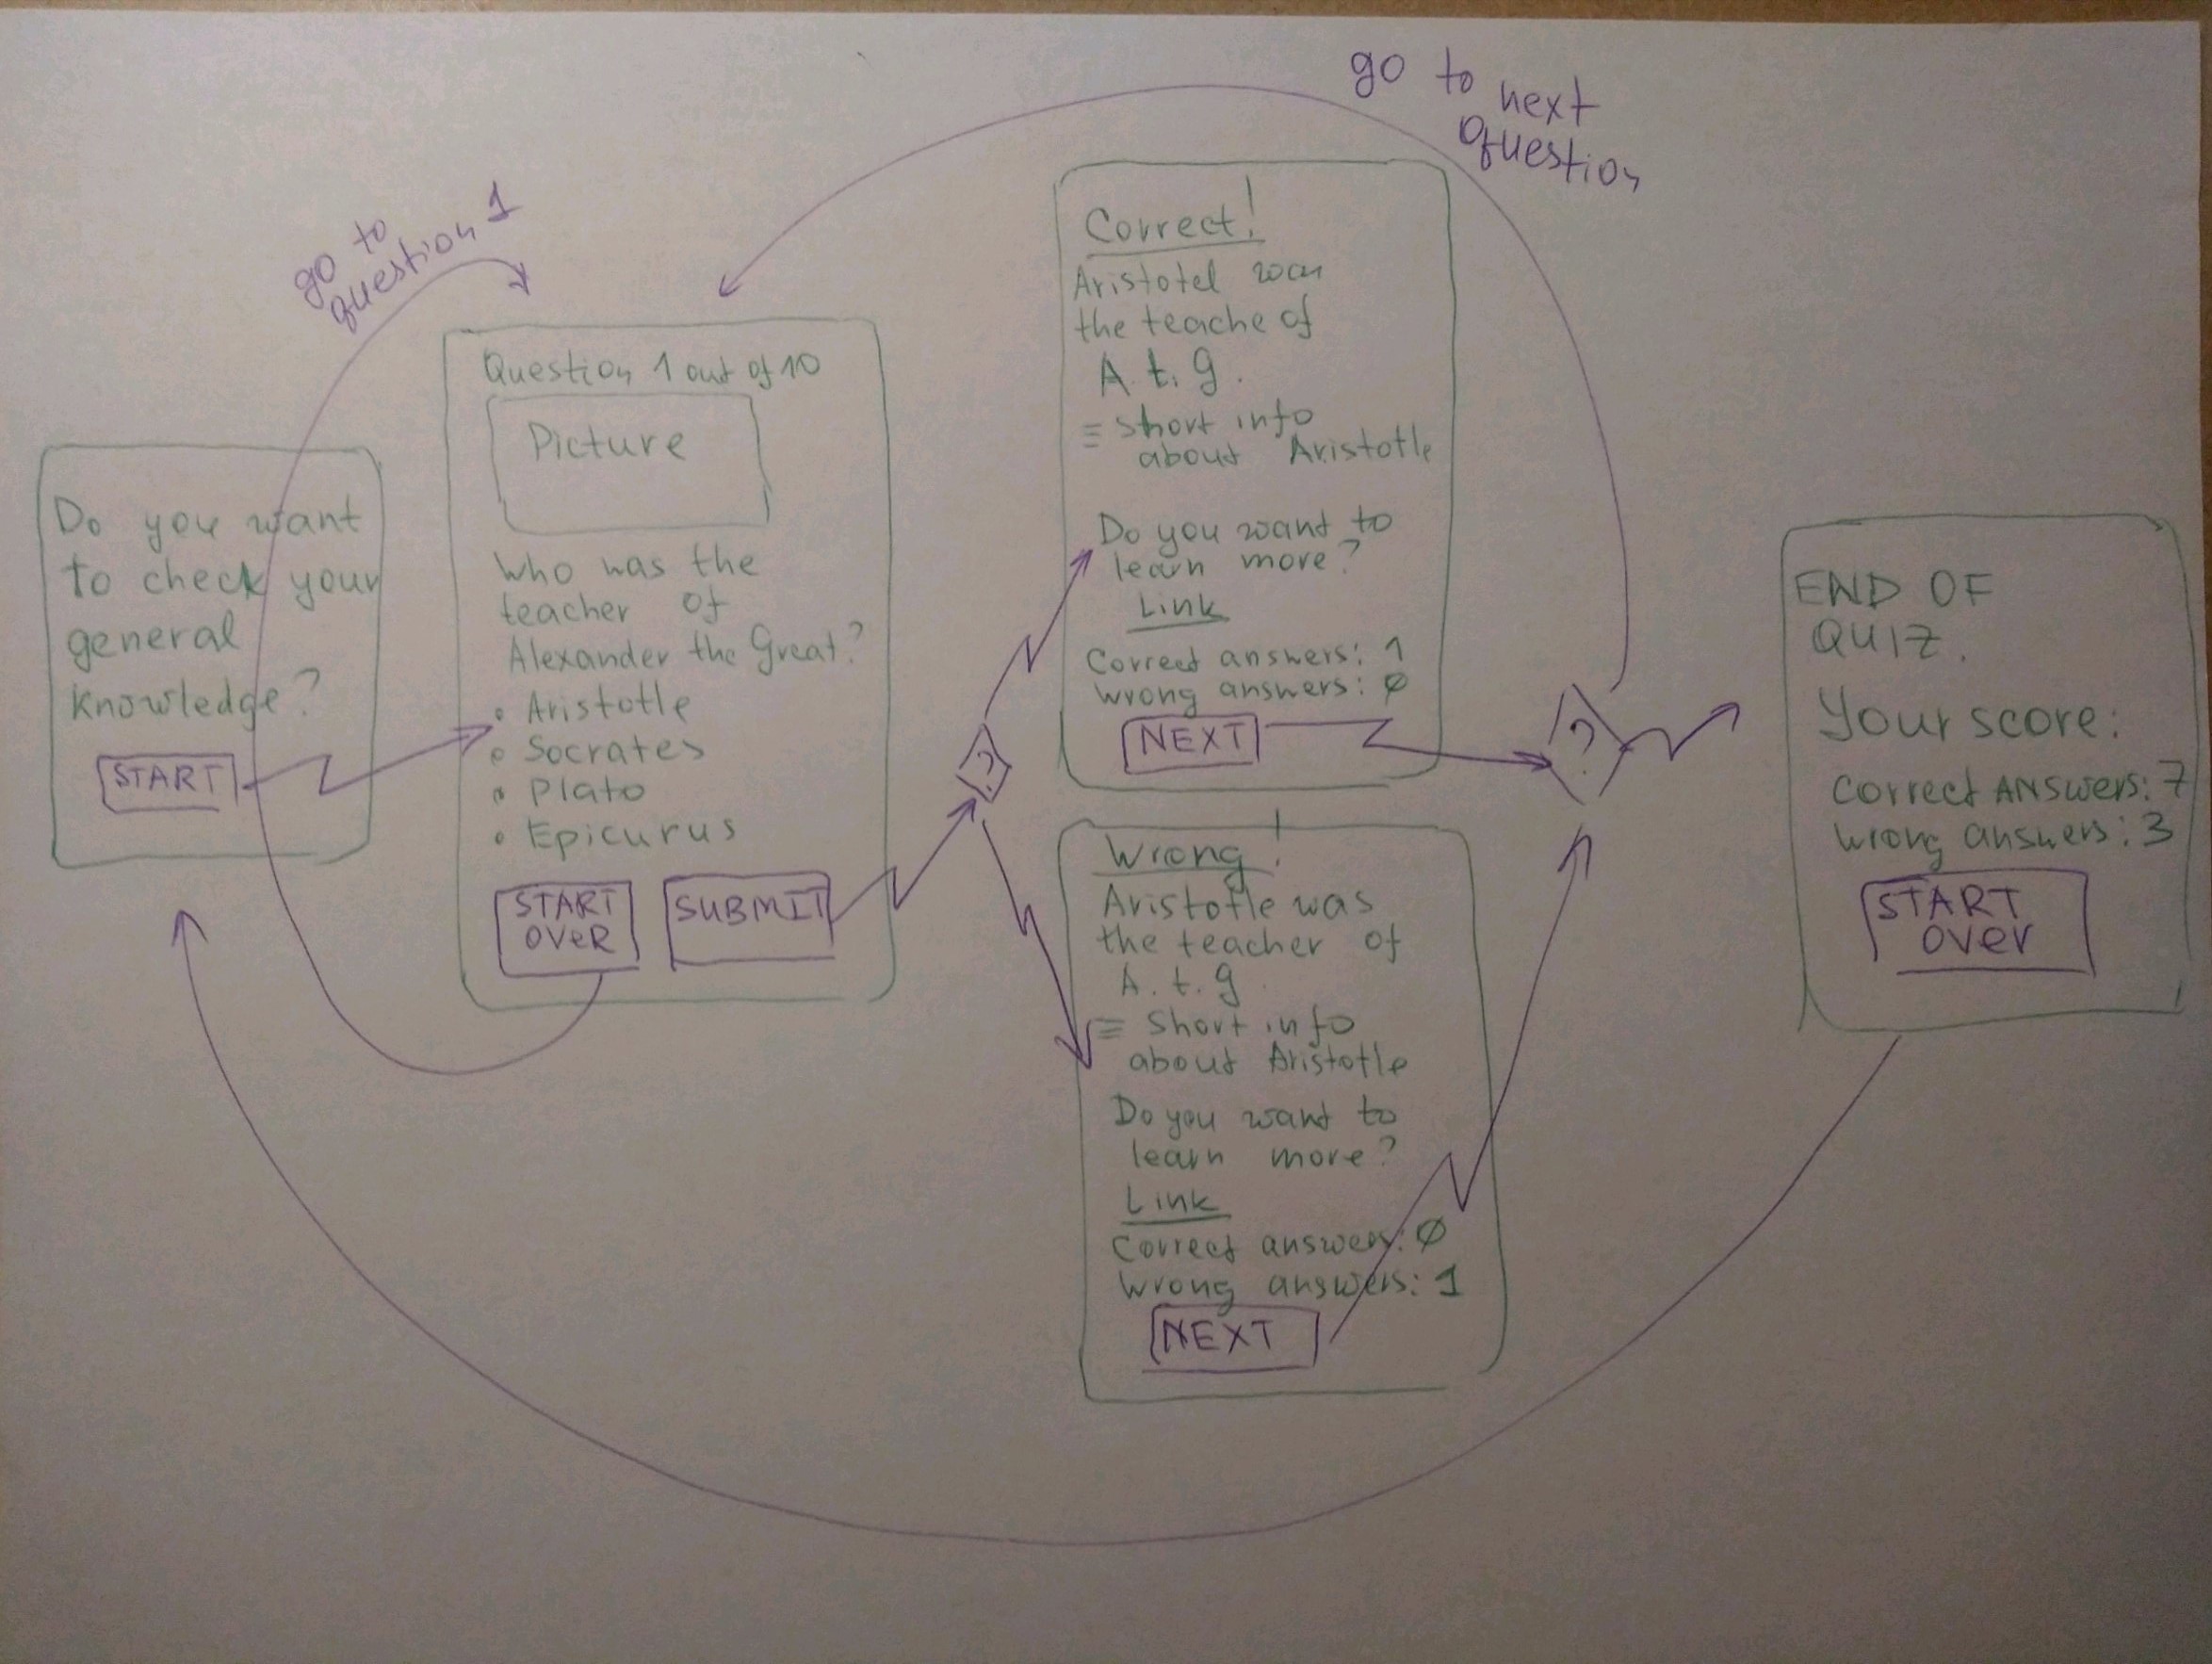 go to
next
question
go to
question 1
Do you want
to check your
general
knowledge?
START
Question 1 out of 10
Picture
Who was the
teacher of
Alexander the Great?
• Aristotle
• Socrates
• Plato
• Epicurus
START
OVER
SUBMIT
?
Correct!
Aristotel
the teache of
A. t. g.
≡ short info
about Aristotle
Do you want to
learn more?
Link
Correct answers: 1
Wrong answers: 0
NEXT
Wrong!
Aristotle was
the teacher of
A. t. g.
≡ Short info
about Aristotle
Do you want to
learn more?
Link
Correct answers: 0
Wrong answers: 1
NEXT
?
END OF
QUIZ.
Your score:
Correct ANSwers: 7
Wrong answers: 3
START
over